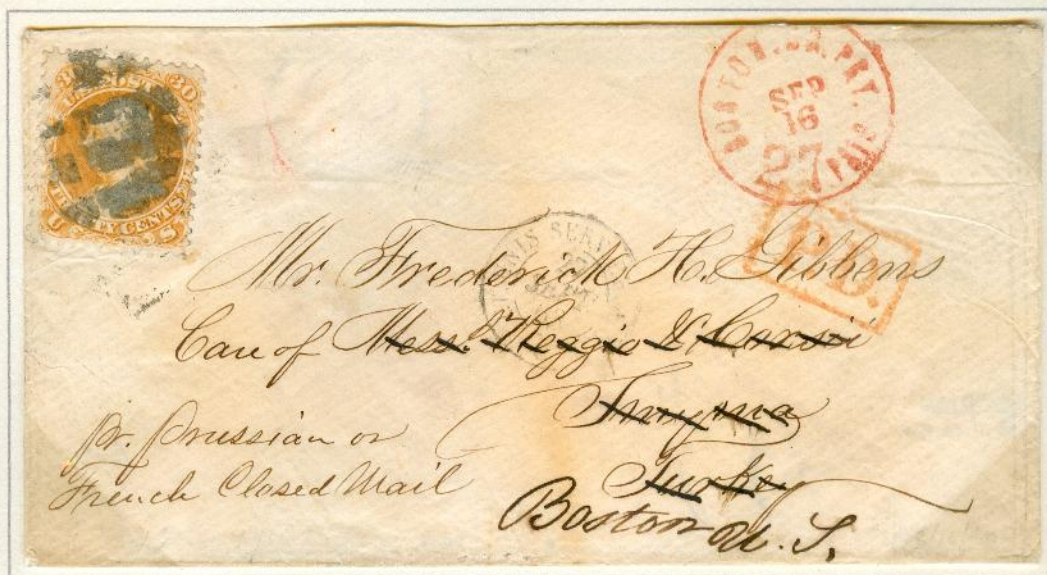 U.S. POSTAGE
30 30
THIRTY CENTS
U S
BOSTON. BR. PKT.
SEP
16
27
PAID
P.D.
SERV
Mr. Frederick H. Gibbens
Care of Mess. Reggio &
Smyrna
Turkey
Boston U. S.
pr. Prussian or
French Closed Mail